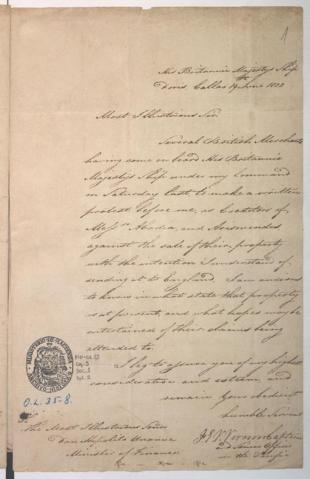 1
His Britannic Majesty's Ship
Doris Callao 19 June 1822
Most Illustrious Sir
Several British Merchants
having come on board His Britannic
Majesty's Ship under my Command
on Saturday last to make a written
protest before me, as Creditors of
Mess.rs Abadia, and Arismendi
against the sale of their property
with the intention I understand of
sending it to England, I am anxious
to know in what state that property
is at present, and what hopes may be
entertained of their claims being
attended to.
I beg to assure you of my highest
consideration and esteem, and
remain Your obedient
humble Servant
O.L. 35-8.
The Most Illustrious Señor
Don Hipolito Unanue
Minister of Finance
Captain
and Senior Officer
in the Pacific